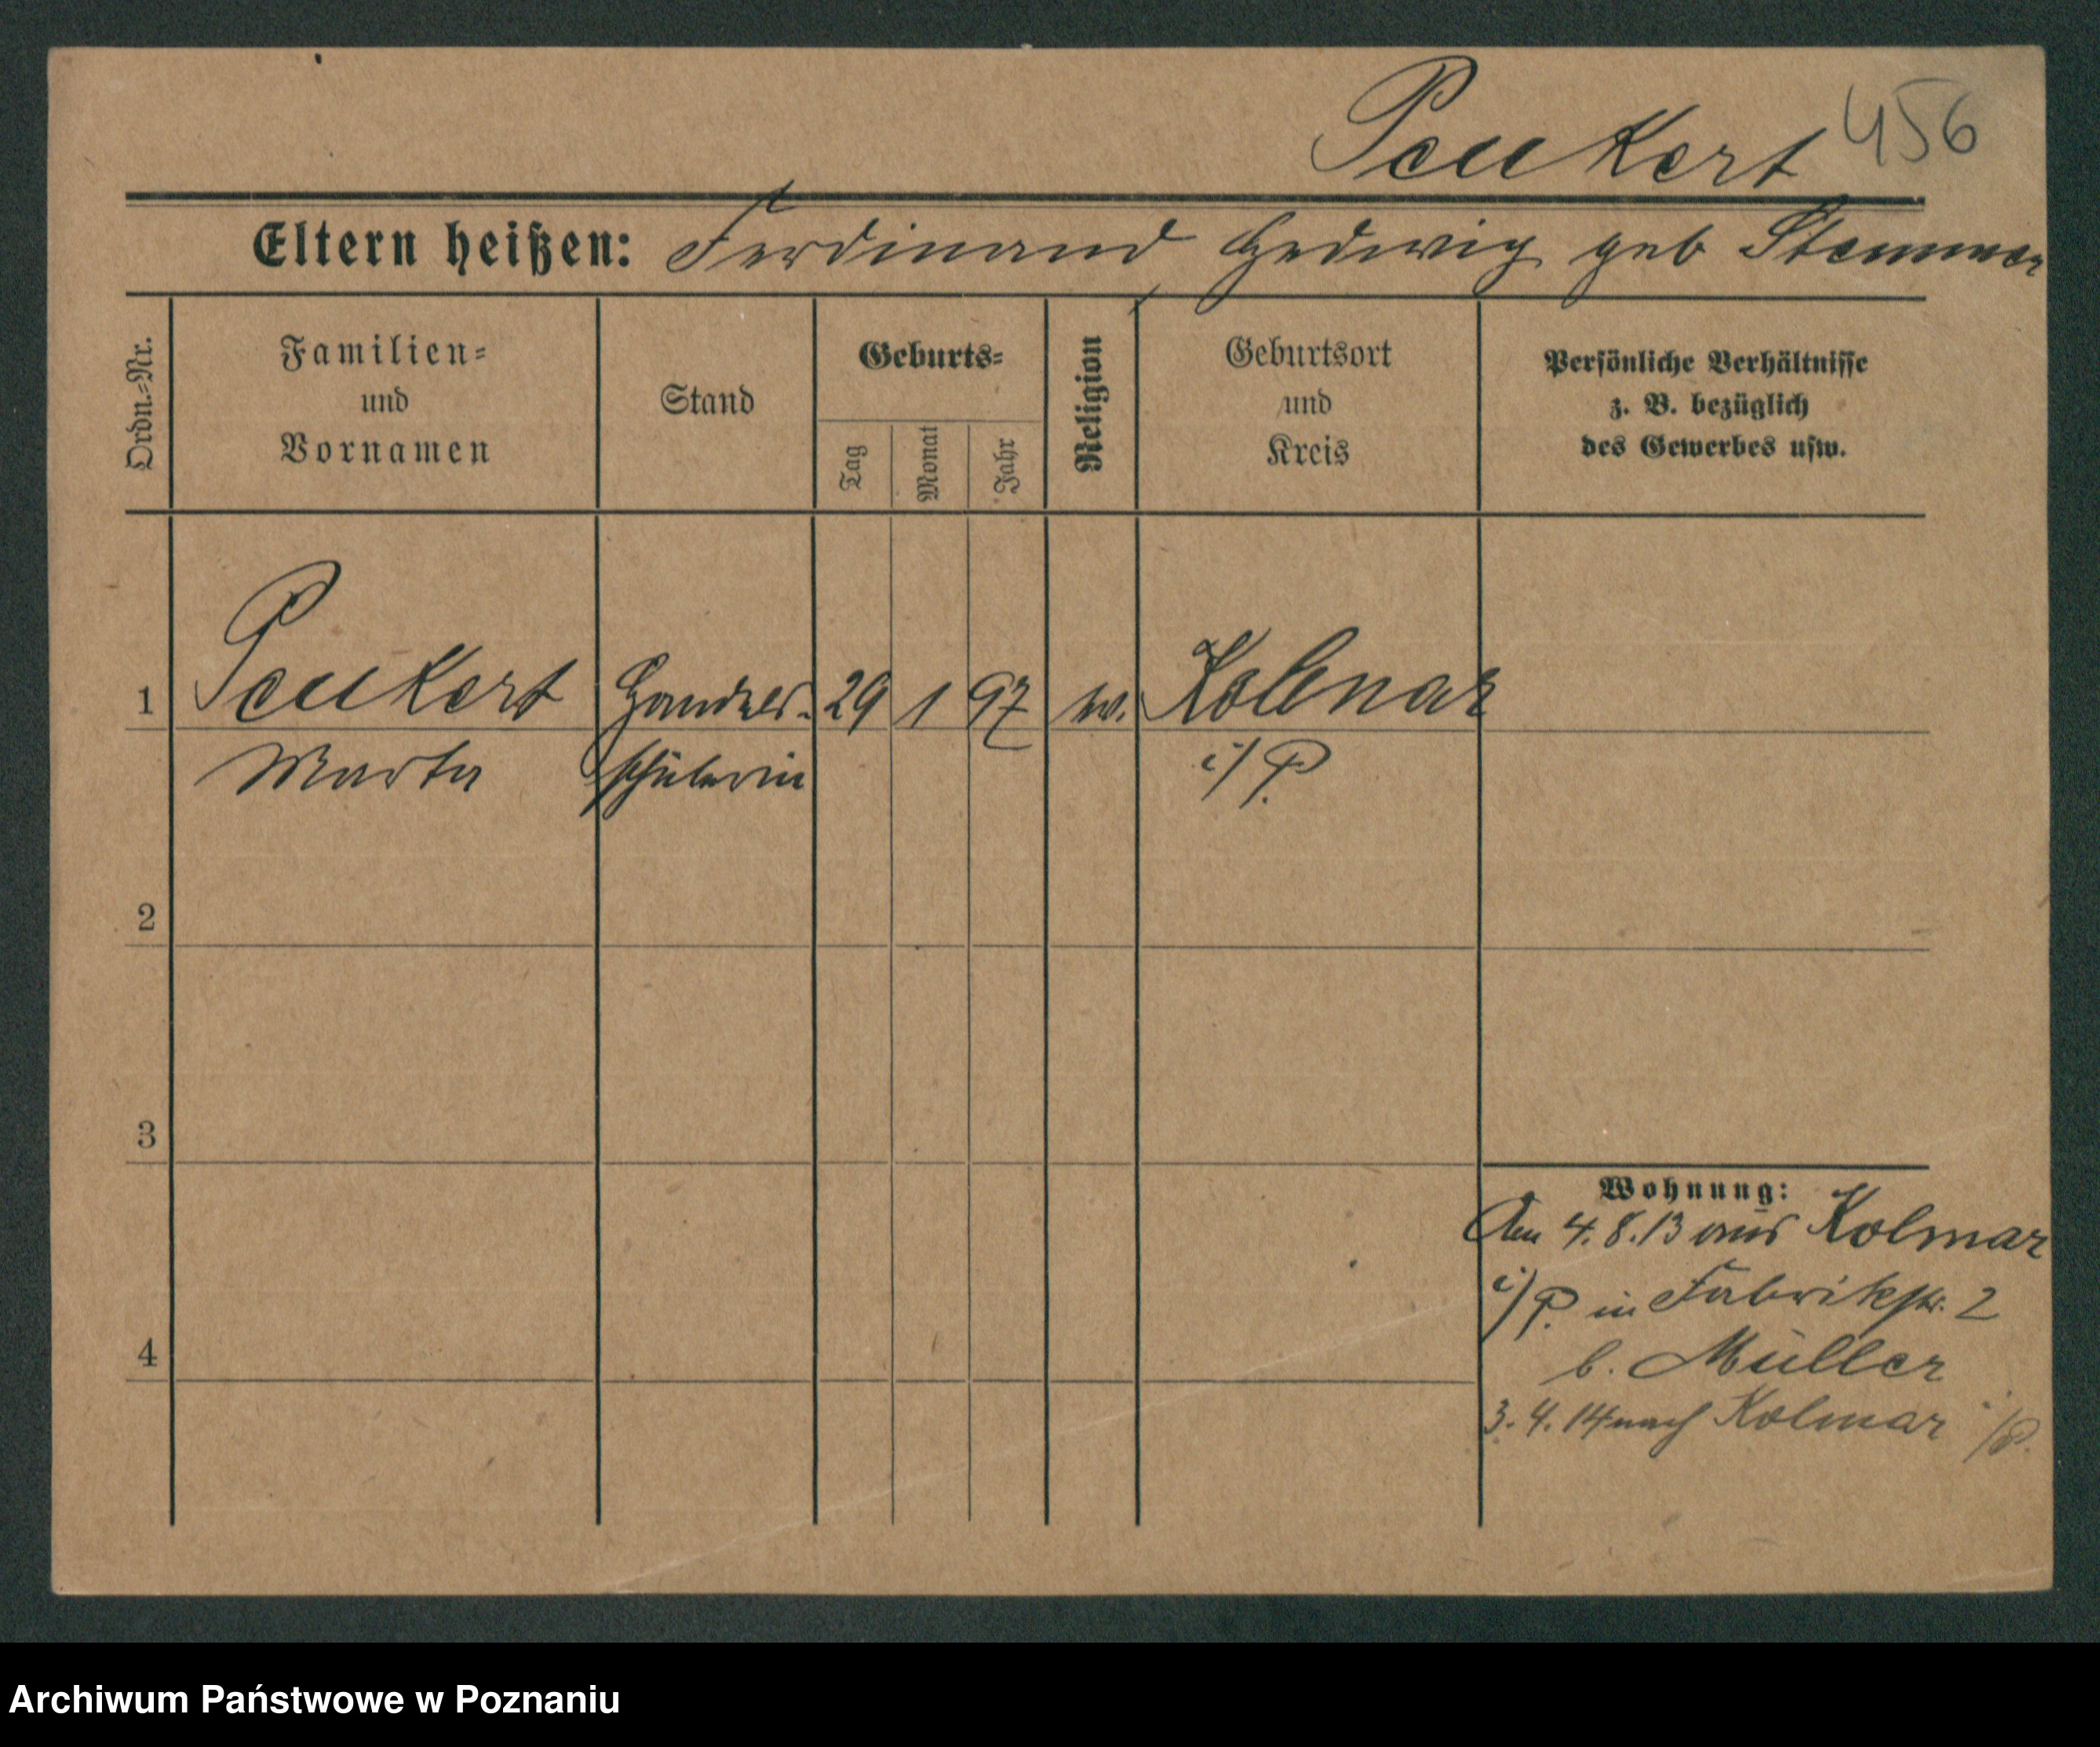 Peukert 456
Eltern heißen: Ferdinand Hedwig geb Stemmer
Ordn.-Nr.
Familien-
und
Vornamen
Stand
Geburts-
Tag
Monat
Jahr
Religion
Geburtsort
und
Kreis
Persönliche Verhältnisse
z. B. bezüglich
des Gewerbes usw.
1 Peukert Handels- 29 1 97 ev. Kolmar
Marta schülerin i/P.
2
3
4
Wohnung:
Am 4.8.13 aus Kolmar
i/P. in Fabrikstr. 2
b. Müller
3.4.14 nach Kolmar i/P.
Archiwum Państwowe w Poznaniu